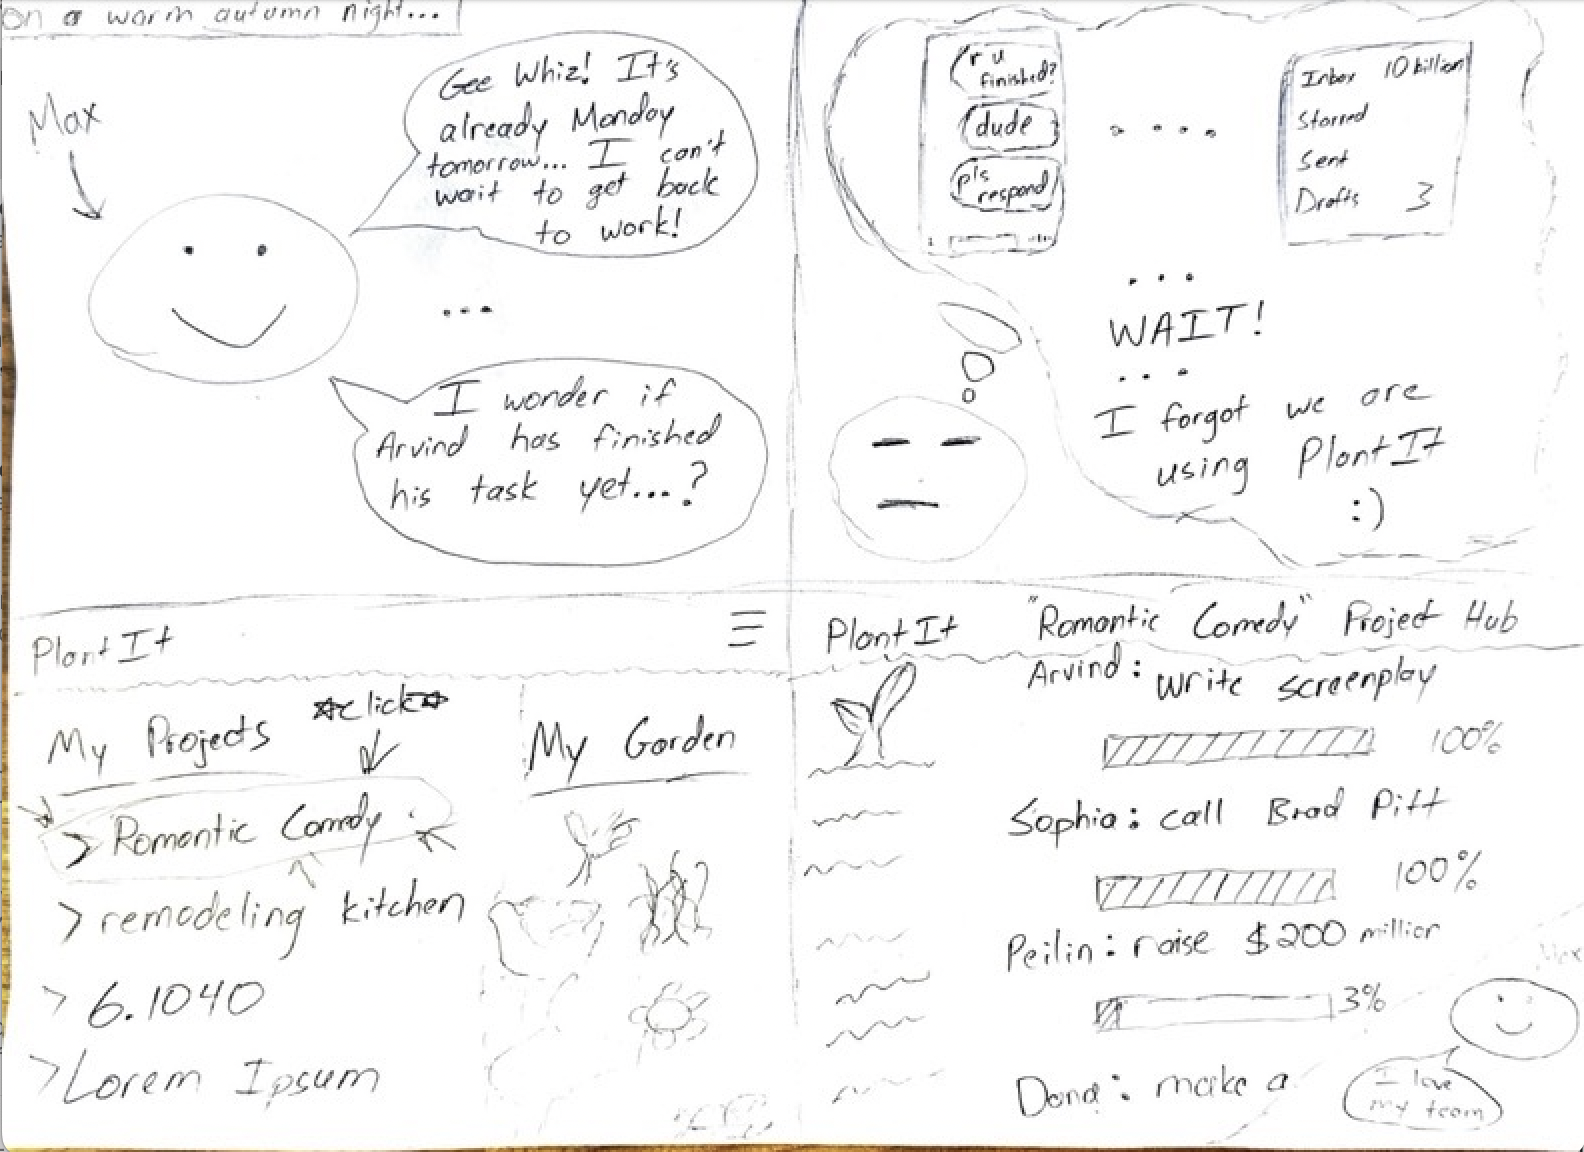 on a warm autumn night...
Max
Gee Whiz! It's
already Monday
tomorrow... I can't
wait to get back
to work!
...
I wonder if
Arvind has finished
his task yet...?
r u
finished?
dude
pls
respond
....
Inbox 10 billion
Starred
Sent
Drafts 3
...
WAIT!
...
I forgot we are
using PlantIt
:)
PlantIt
My Projects
*click*
> Romantic Comedy
> remodeling kitchen
> 6.1040
> Lorem Ipsum
My Garden
PlantIt "Romantic Comedy" Project Hub
Arvind: write screenplay
100%
Sophia: call Brad Pitt
100%
Peilin: raise $200 million
3%
Dana: make a
Max
I love
my team